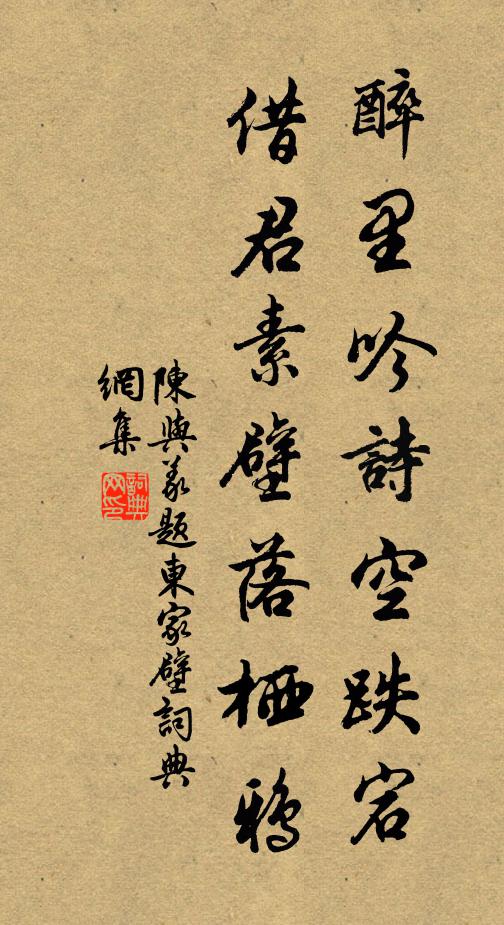 醉里吟詩空跌宕
借君素壁落栖鴉
陳與義題東家壁詞典
網集
詞典
网印